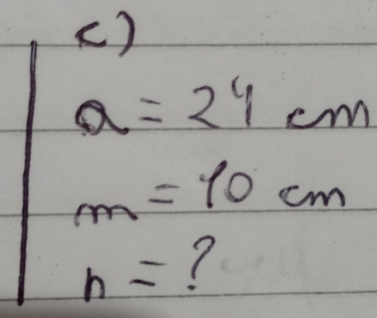 c)
a = 24 cm
m = 10 cm
n = ?